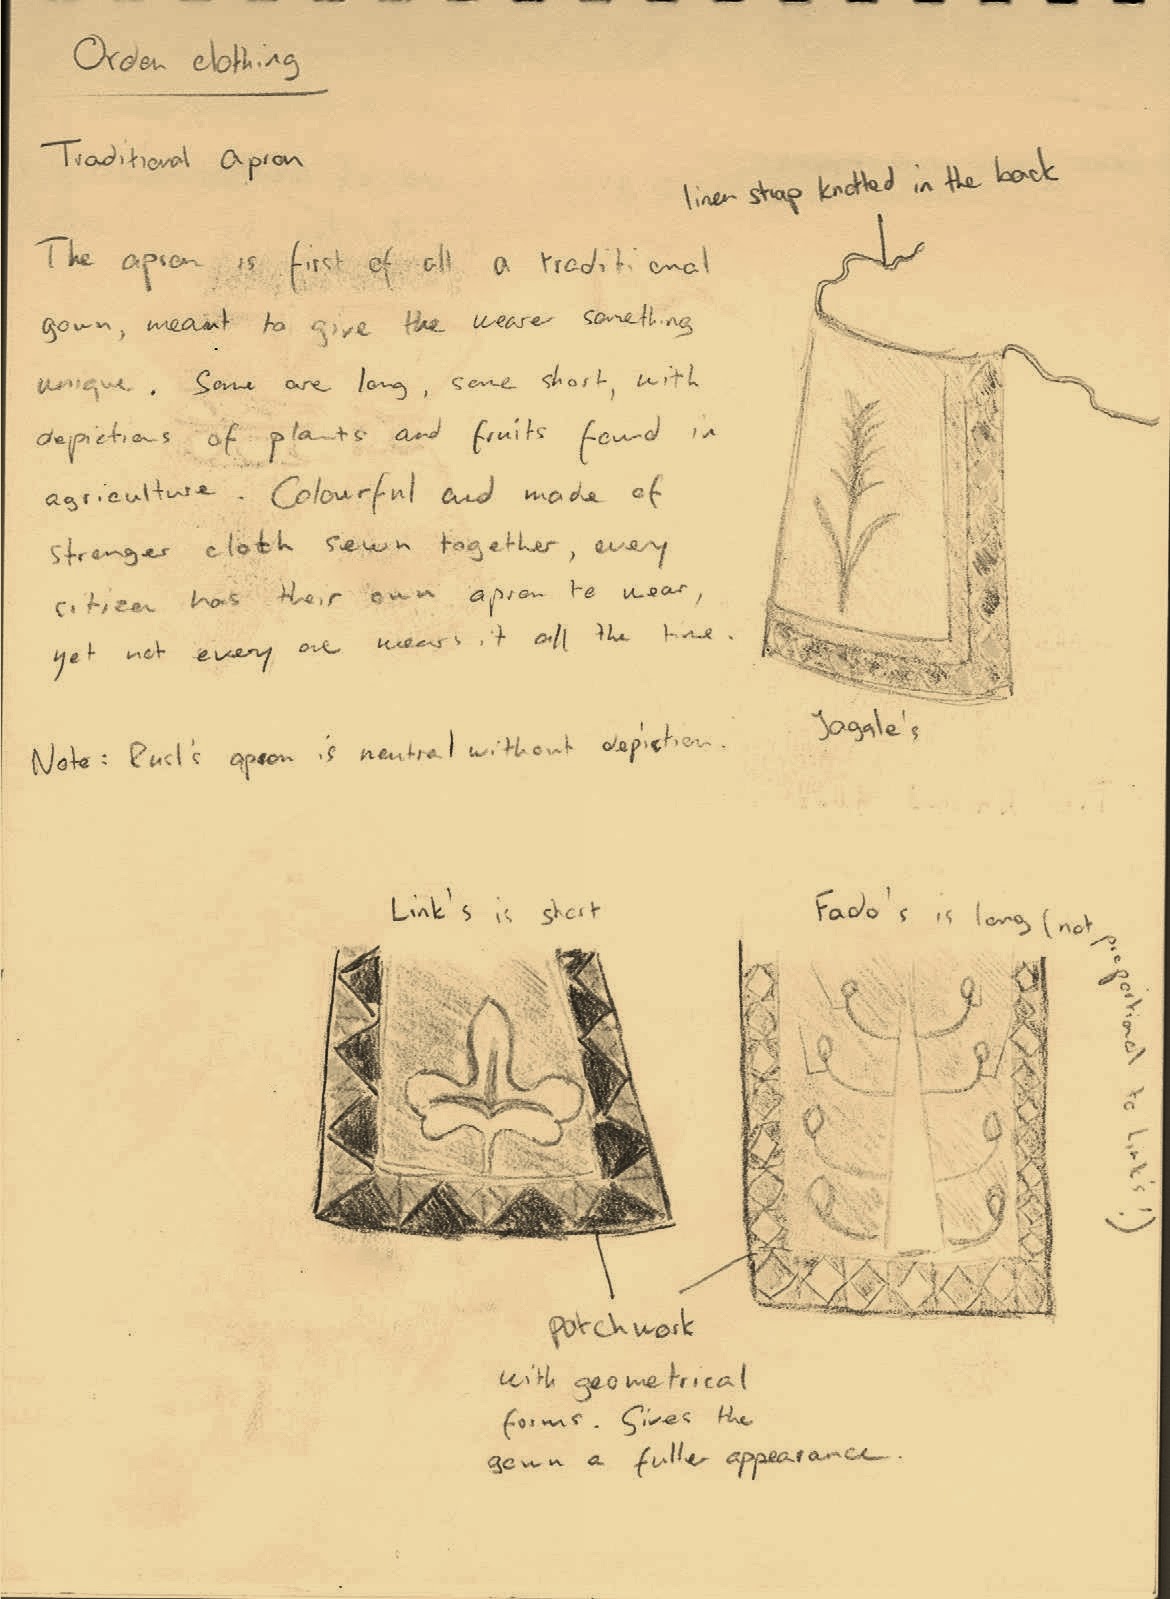 Ordon clothing
Traditional apron
linen strap knotted in the back
The apron is first of all a traditional
gown, meant to give the wearer something
unique. Some are long, some short, with
depictions of plants and fruits found in
agriculture. Colourful and made of
stronger cloth sewn together, every
citizen has their own apron to wear,
yet not every one wears it all the time.
Jaggle's
Note: Rusl's apron is neutral without depiction.
Link's is short
Fado's is long (not proportional to Link's!)
patchwork
with geometrical
forms. Gives the
gown a fuller appearance.